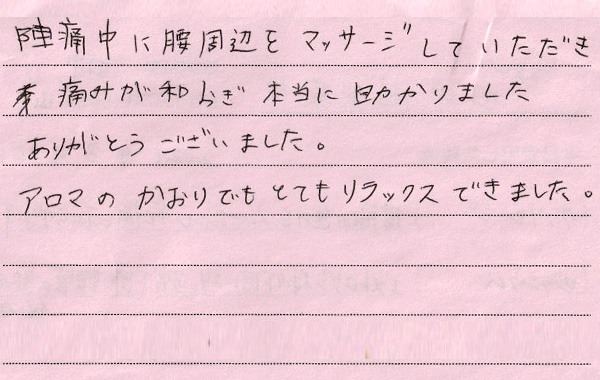 陣痛中に腰周辺をマッサージしていただき
痛みが和らぎ本当に助かりました
ありがとうございました。
アロマのかおりでもとてもリラックスできました。